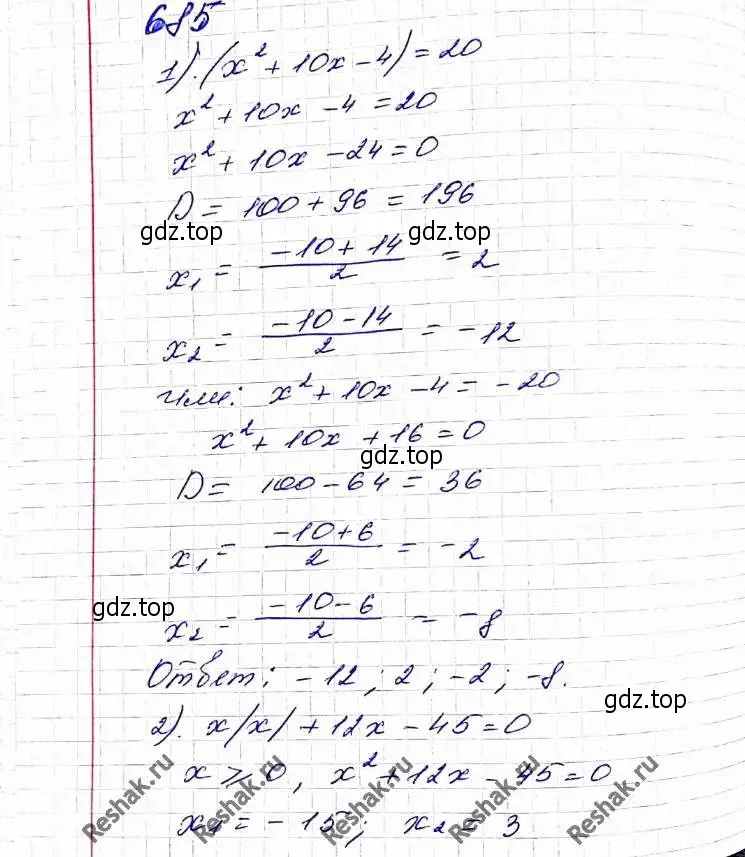 685
1). (x² + 10x - 4) = 20
x² + 10x - 4 = 20
x² + 10x - 24 = 0
D = 100 + 96 = 196
gdz.top gdz.top
x₁ = (-10 + 14)/2 = 2
x₂ = (-10 - 14)/2 = -12
Или: x² + 10x - 4 = -20
x² + 10x + 16 = 0
gdz.top
D = 100 - 64 = 36
x₁ = (-10 + 6)/2 = -2
gdz.top
x₂ = (-10 - 6)/2 = -8
Ответ: -12; 2; -2; -8.
gdz.top
2). x|x| + 12x - 45 = 0
x ⩾ 0, x² + 12x - 45 = 0
x₁ = -15; x₂ = 3
Reshak.ru Reshak.ru Reshak.ru Reshak.ru